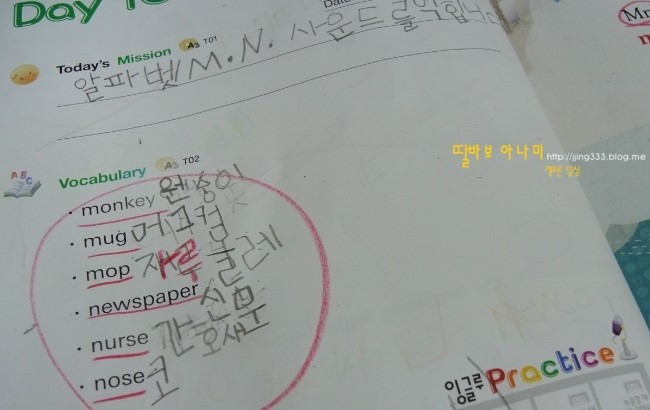 Day
Date
Today's Mission A3 T01
알파벳 M.N. 사운드를 익힙니
Mr
Vocabulary A3 T02
· monkey 원숭이
· mug 머그컵
· mop 자루걸레
· newspaper 신문
· nurse 간호사
· nose 코
딸바보 아나미 http://jjing333.blog.me
잉글루 Practice
ABC